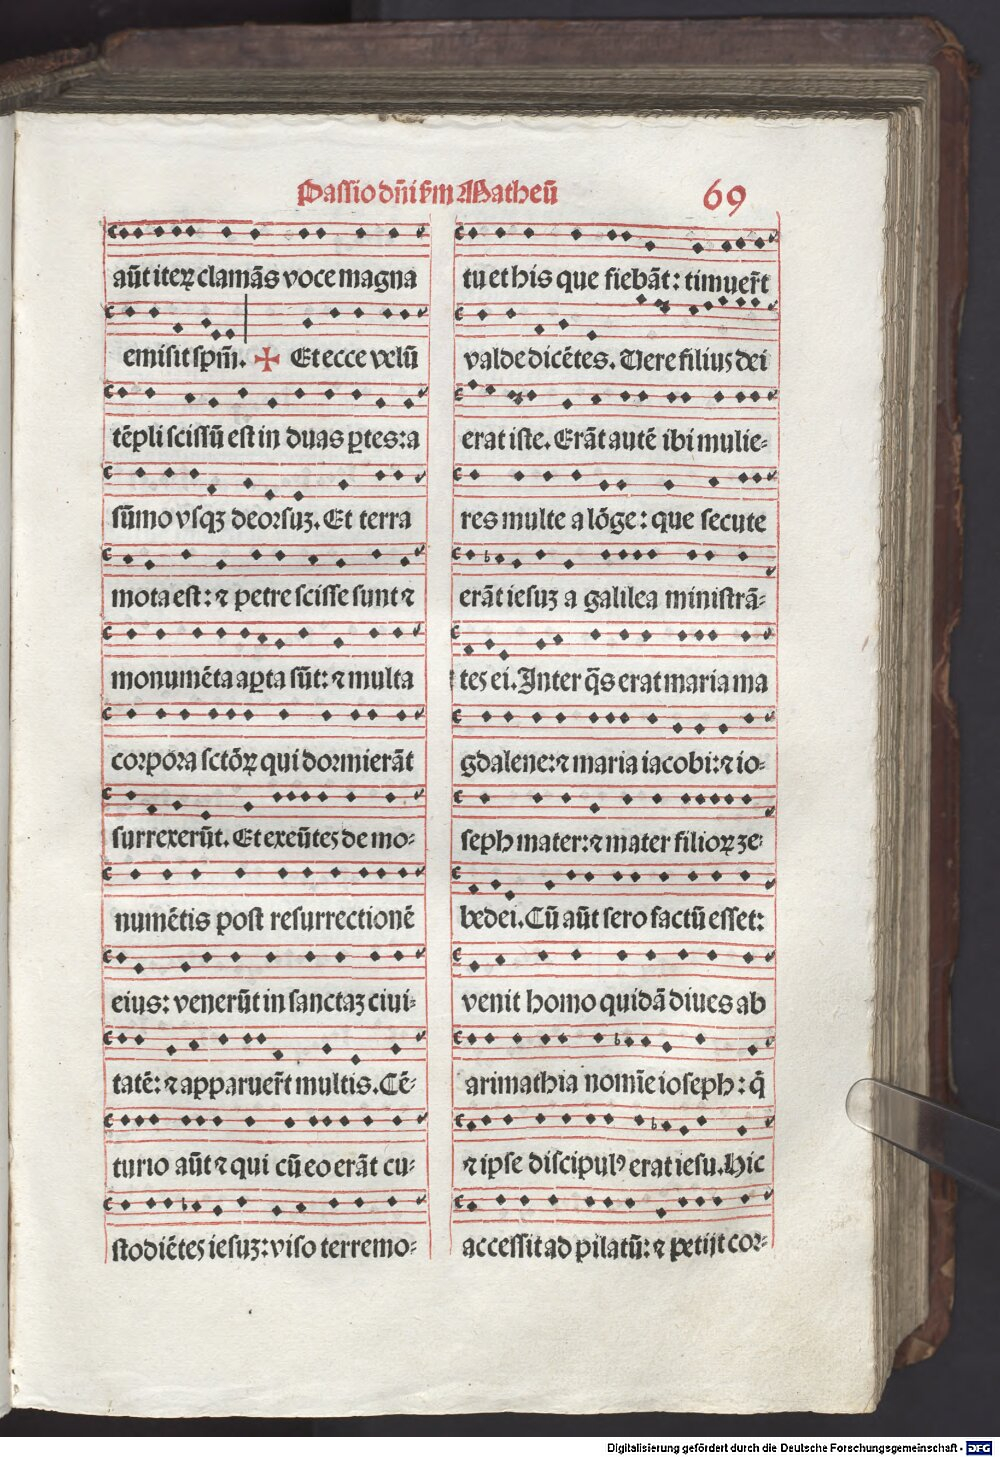 Passio dñi ẜm Matheū
69
aūt iteꝝ clamãs voce magna
emisit spm̃. ✠ Et ecce velū
tẽpli scissũ est in duas ꝑtes: a
sũmo vsqꝫ deorsuꝫ. Et terra
mota est: ⁊ petre scisse sunt ⁊
monumẽta aꝑta sũt: ⁊ multa
corpora sctõꝝ qui dormierãt
surrexerũt. Et exeũtes de mo⸗
numẽtis post resurrectionẽ
eius: venerũt in sanctaꝫ ciui⸗
tatẽ: ⁊ apparuer̃t multis. Cẽ⸗
turio aũt ⁊ qui cũ eo erãt cu⸗
stodiẽtes iesuꝫ: viso terremo⸗
tu et his que fiebãt: timuer̃t
valde dicẽtes. Vere filius dei
erat iste. Erãt autẽ ibi mulie⸗
res multe a lõge: que secute
erãt iesuꝫ a galilea ministrã⸗
tes ei. Inter q̃s erat maria ma
gdalene: ⁊ maria iacobi: ⁊ io⸗
seph mater: ⁊ mater filioꝝ ze⸗
bedei. Cũ aũt sero factũ esset:
venit homo quidã diues ab
arimathia nomĩe ioseph: q̃
⁊ ipse discipulꝰ erat iesu. Hic
accessit ad pilatũ: ⁊ petijt cor⸗
Digitalisierung gefördert durch die Deutsche Forschungsgemeinschaft - DFG